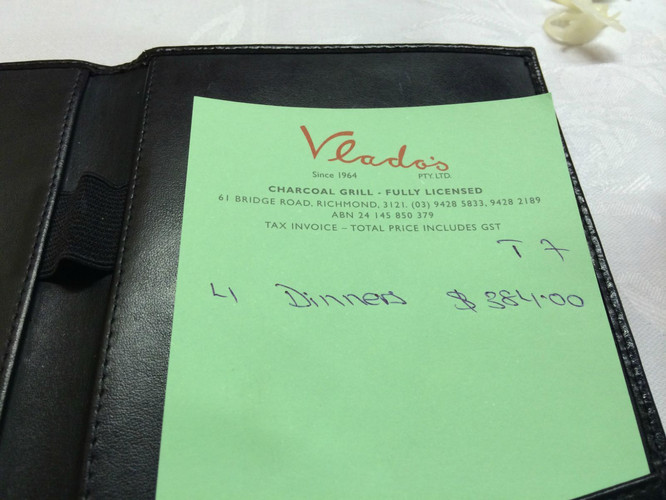 Vlado's
Since 1964 PTY. LTD.
CHARCOAL GRILL - FULLY LICENSED
61 BRIDGE ROAD, RICHMOND, 3121. (03) 9428 5833, 9428 2189
ABN 24 145 850 379
TAX INVOICE – TOTAL PRICE INCLUDES GST
T 7
4 Dinners $384.00